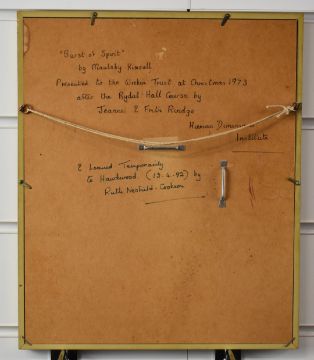 "Burst of Spirit"
by Maulsby Kimball
Presented to the Wrekin Trust at Christmas 1973
after the Rydal Hall Course by
Jeanne & Fortis Rindge
Human Dimensions
Institute
& Loaned Temporarily
to Hawkwood. (13.4.92) by
Ruth Nesfield-Cookson